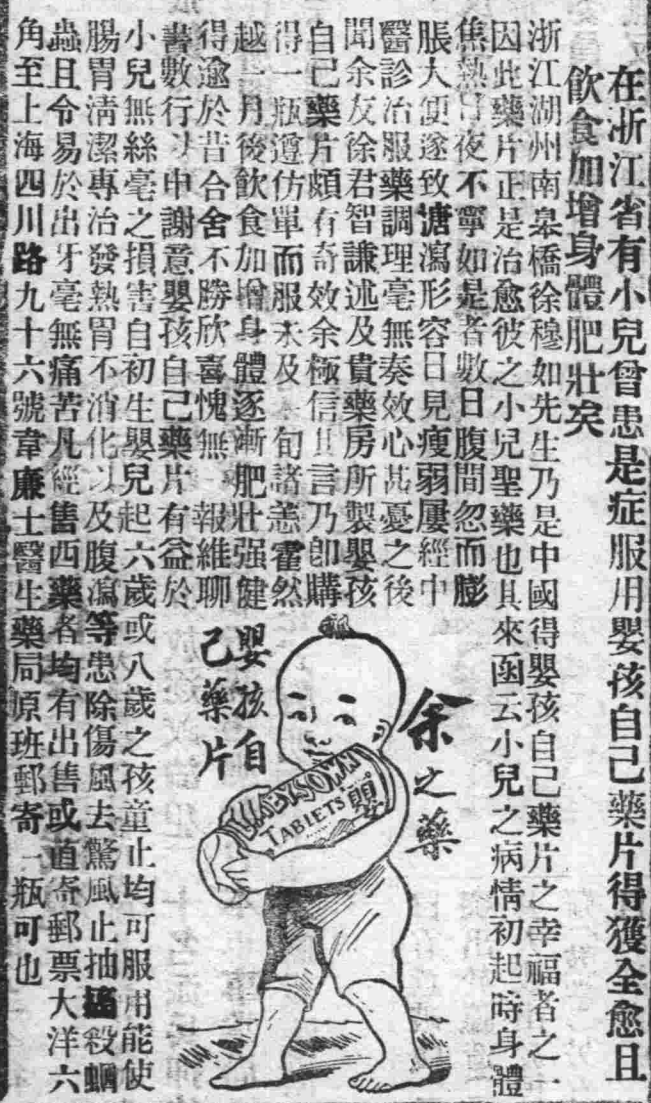 在浙江省有小兒曾患是症服用嬰孩自己藥片得獲全愈且
飲食加增身體肥壯矣
浙江湖州南皋橋徐穆如先生乃是中國得嬰孩自己藥片之幸福者之一
因此藥片正是治愈彼之小兒聖藥也其來函云小兒之病情初起時身體
焦熱日夜不寧如是者數日腹間忽而膨
脹大便遂致溏瀉形容日見瘦弱屢經中
醫診治服藥調理毫無奏效心甚憂之後
聞余友徐君智謙述及貴藥房所製嬰孩
自己藥片頗有奇效余極信其言乃卽購
得一瓶遵仿單而服未及一旬諸恙霍然
越一月後飲食加增身體逐漸肥壯强健
得逾於昔合舍不勝欣喜愧無報維聊
書數行以申謝意嬰孩自己藥片有益於
小兒無絲毫之損害自初生嬰兒起六歲或八歲之孩童止均可服用能使
腸胃淸潔專治發熱胃不消化以及腹瀉等患除傷風去驚風止抽搐殺蛔
蟲且令易於出牙毫無痛苦凡經售西藥者均有出售或直寄郵票大洋六
角至上海四川路九十六號韋廉士醫生藥局原班郵寄一瓶可也
余之藥
嬰孩自
己藥片
BABY'S OWN
TABLETS
嬰